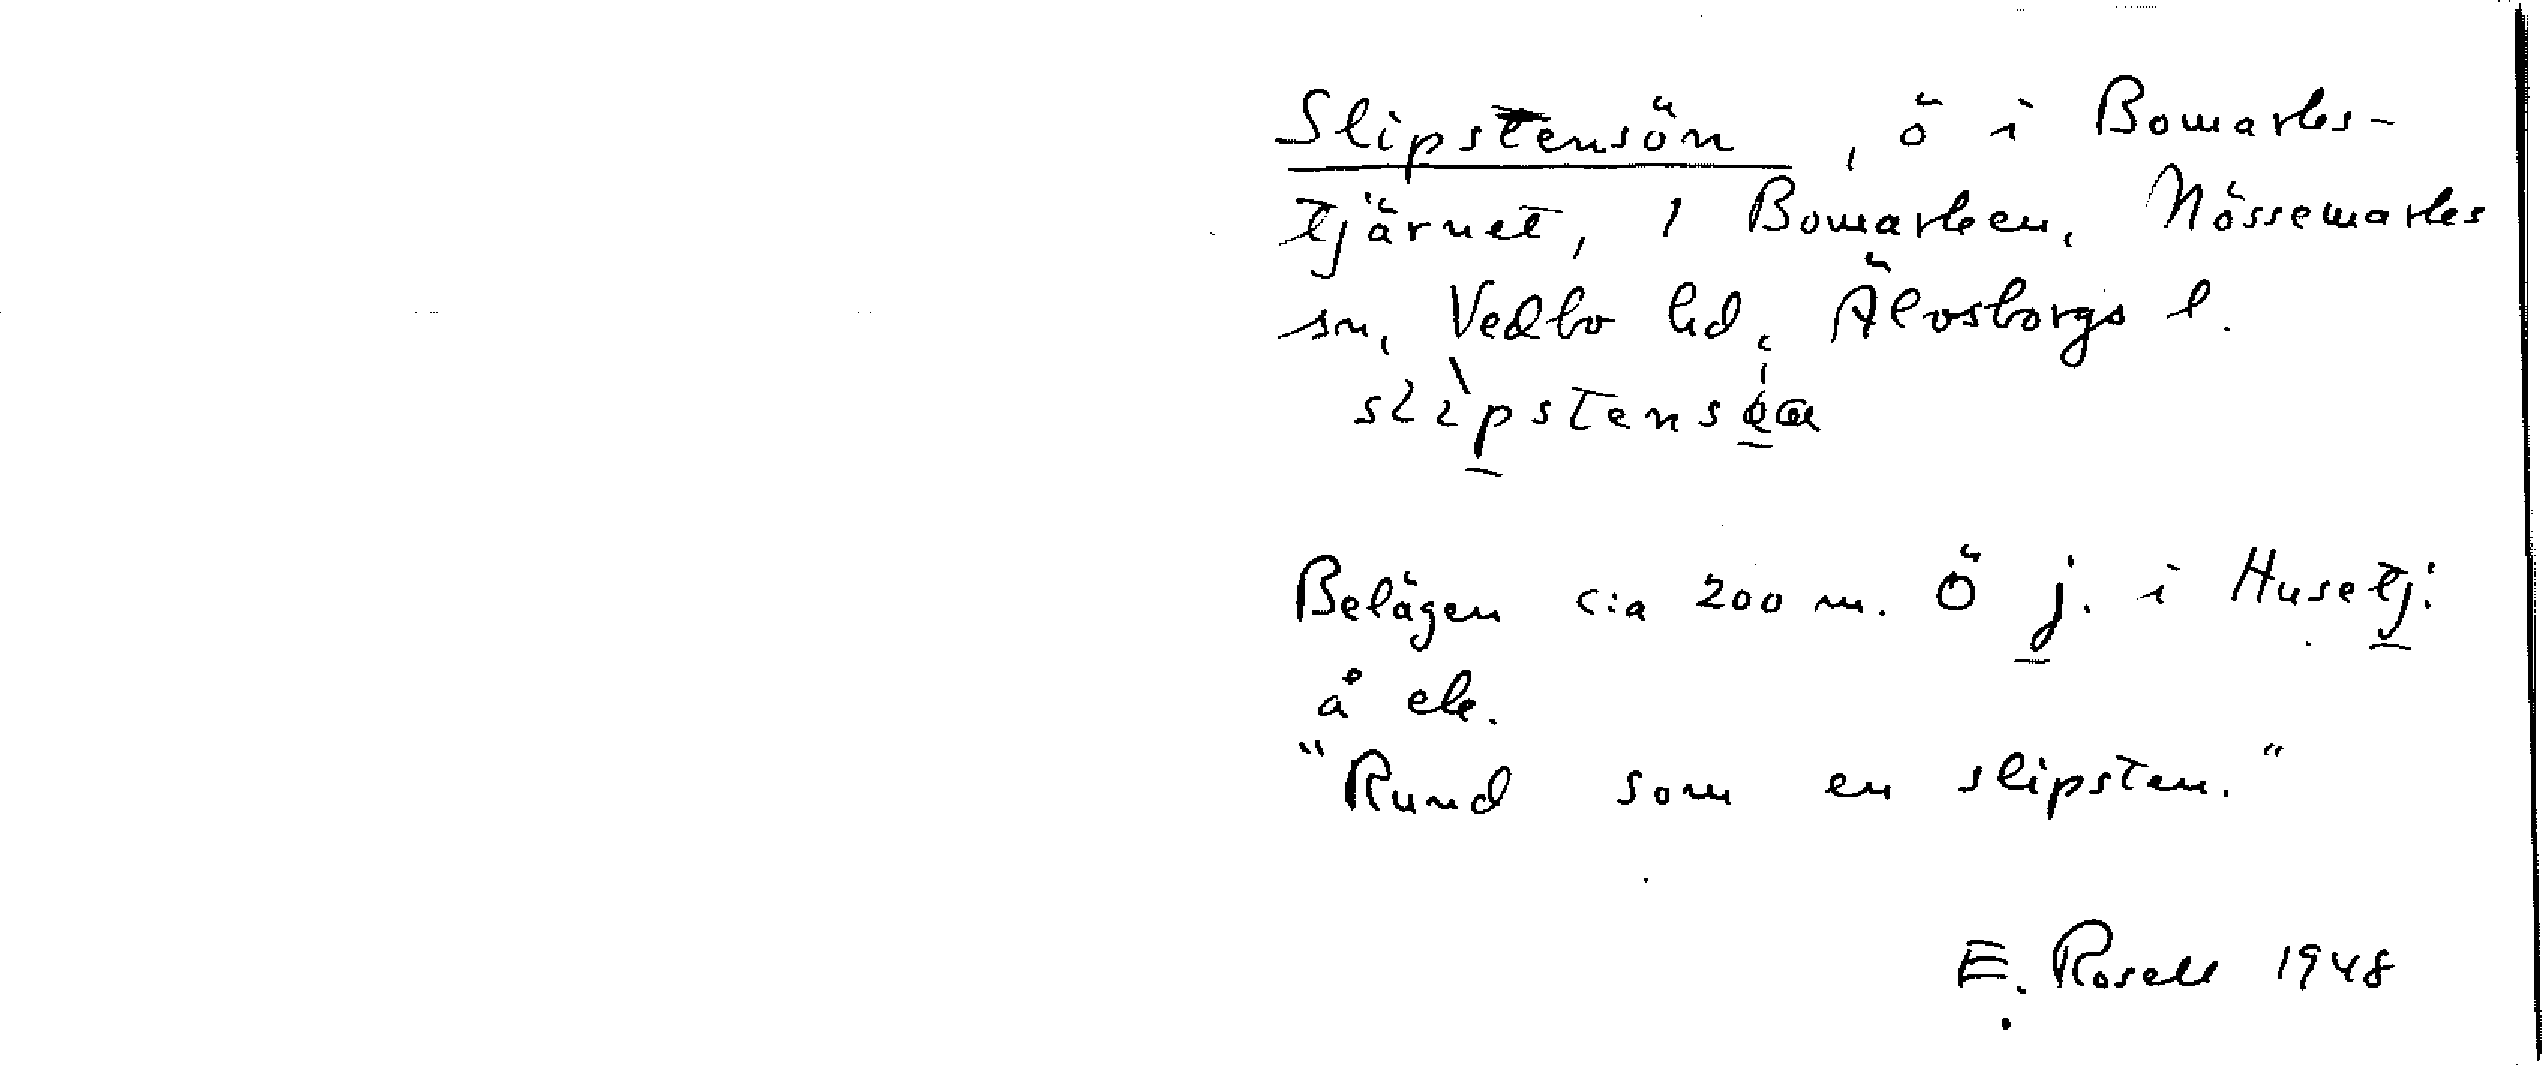 Slipstensön, ö i Bomarks-
tjärnet, 1 Bomarken, Nössemarks
sn, Vedbo hd, Älvsborgs l.
Belägen c:a 200 m. Ö j. i Husetj.
å ek.
"Rund som en slipsten."
E. Rosell 1948